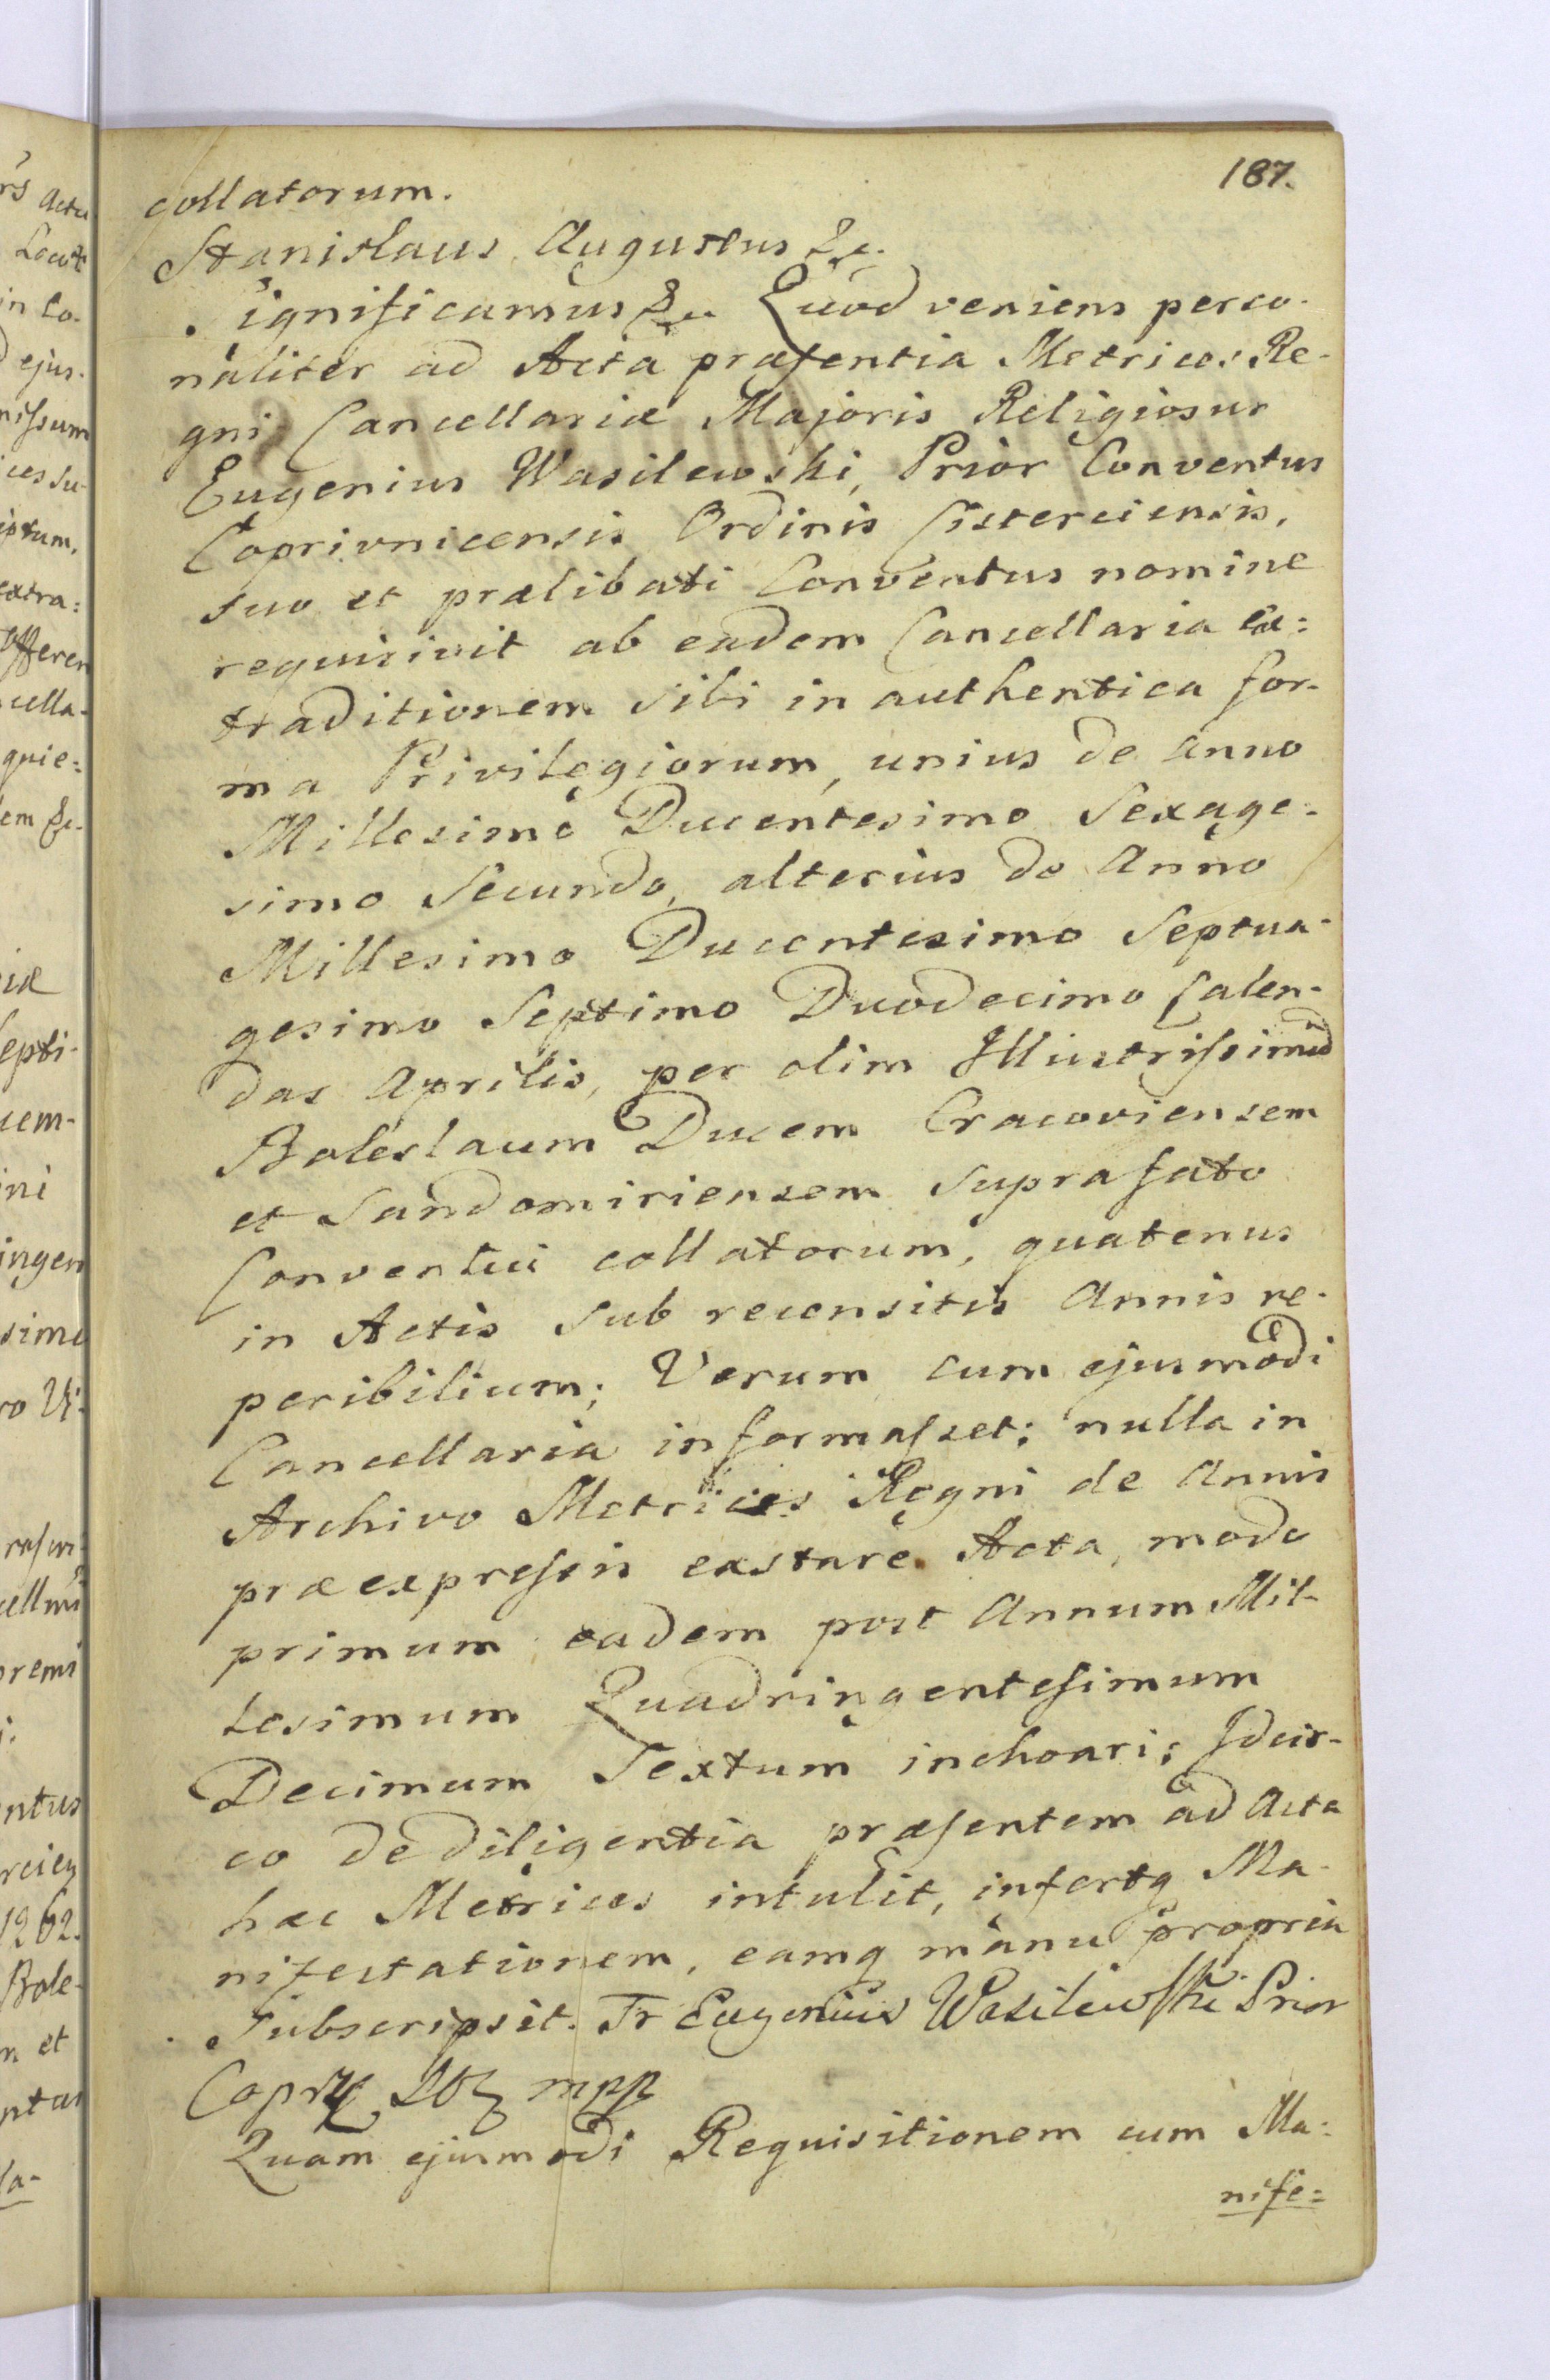 187.
collatorum.
Stanislaus Augustus &c.
Significamus &c. Quod veniens perso-
naliter ad Acta præsentia Metrices Re-
gni Cancellariæ Majoris Religiosus
Eugenius Wasilewski, Prior Conventus
Coprivnicensis Ordinis Cisterciensis,
suo et prælibati Conventus nomine
requisivit ab eadem Cancellaria ex:
traditionem sibi in authentica for-
ma Privilegiorum, unius de Anno
Millesimo Ducentesimo Sexage-
simo Secundo, alterius de Anno
Millesimo Ducentesimo Septua-
gesimo Septimo Duodecimo Calen-
das Aprilis, per olim Illustrissimū
Boleslaum Ducem Cracoviensem
et Sandomiriensem suprafato
Conventui collatorum, quatenus
in Actis sub recensitis Annis re-
peribilium; Verum cum ejusmodi
Cancellaria informasset; nulla in
Archivo Metrices Regni de Annis
præexpressis exstare Acta, modo
primum eadem post Annum Mil-
lesimum Quadringentesimum
Decimum Sextum inchoari; Idcir-
co de diligentia præsentem ad Acta
hæc Metrices intulit, infertq Ma-
nifestationem, eamq manu propria
subscripsit. Fr Eugenius Wasilewski Prior
mpp
Quam ejusmodi Requisitionem cum Ma:
nife=